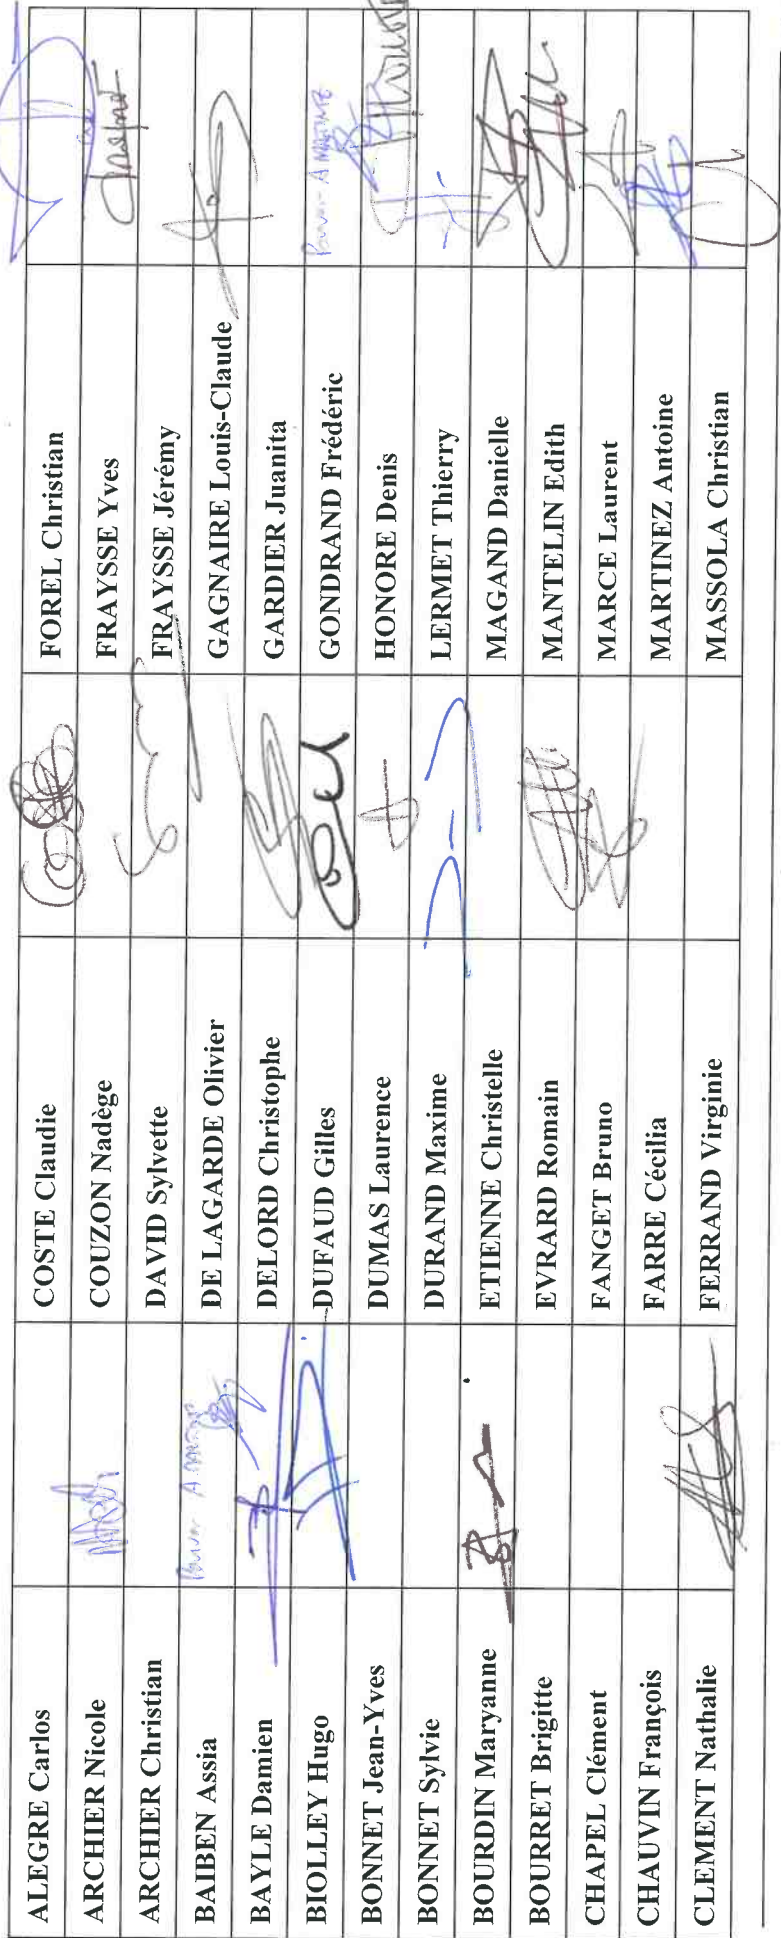 ALEGRE Carlos
COSTE Claudie
FOREL Christian
ARCHIER Nicole
COUZON Nadège
FRAYSSE Yves
ARCHIER Christian
DAVID Sylvette
FRAYSSE Jérémy
BAIBEN Assia
DE LAGARDE Olivier
GAGNAIRE Louis-Claude
BAYLE Damien
DELORD Christophe
GARDIER Juanita
BIOLLEY Hugo
DUFAUD Gilles
GONDRAND Frédéric
BONNET Jean-Yves
DUMAS Laurence
HONORE Denis
BONNET Sylvie
DURAND Maxime
LERMET Thierry
BOURDIN Maryanne
ETIENNE Christelle
MAGAND Danielle
BOURRET Brigitte
EVRARD Romain
MANTELIN Edith
CHAPEL Clément
FANGET Bruno
MARCE Laurent
CHAUVIN François
FARRE Cécilia
MARTINEZ Antoine
CLEMENT Nathalie
FERRAND Virginie
MASSOLA Christian